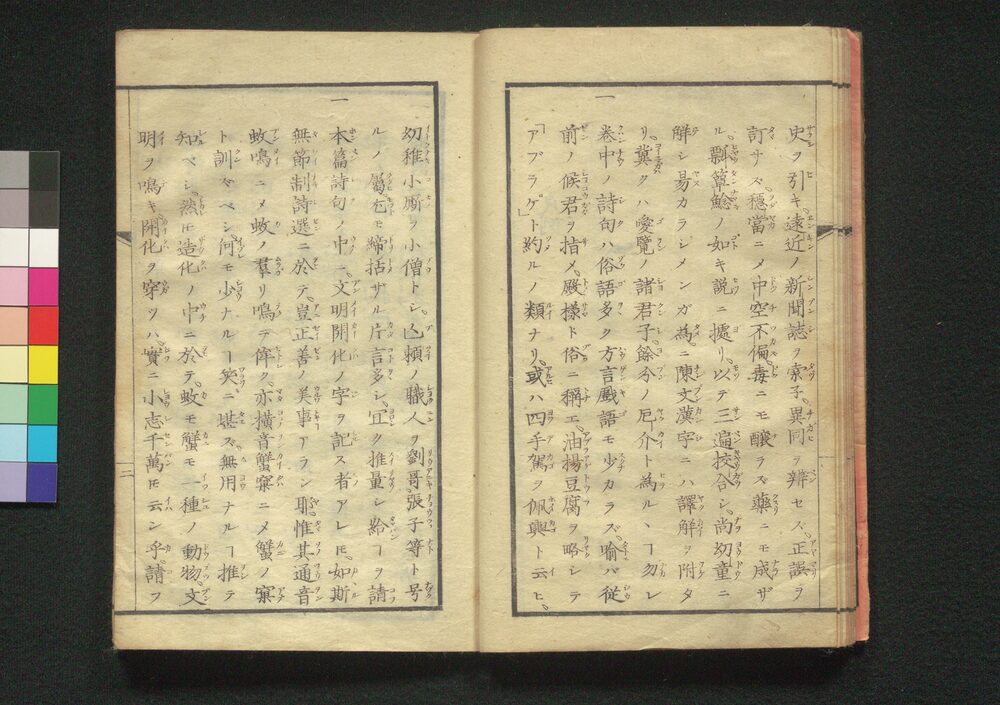 史ヲ引キ。遠近ノ新聞誌ヲ索子。異同ヲ辨セズ。正誤ヲ
訂サズ。穏當ニメ中空不偏。毒ニモ醸ラズ。藥ニモ成ザ
ル。瓢簞鯰ノ如キ説ニ據リ。以テ三遍挍合シ。尚幼童ニ
解シ易カラシメンガ為ニ陳文漢字ニハ譯解ヲ附タ
リ。冀クハ愛覽ノ諸君子。餘分ノ厄介ト為ルヽヿ勿レ
一 巻中ノ詩句ハ俗語多ク方言戯語モ少カラズ。喩バ従
前ノ候君ヲ指メ。殿様ト俗ニ稱エ。油揚豆腐ヲ略シテ
「アブラゲ」ト約ルノ類ナリ。或ハ四手駕ヲ佩輿ト云ヒ。
幼稚小厮ヲ小僧トシ。亾頼ノ職人ヲ劉哥張子等ト号
ルノ屬。乞モ締括ザル片言多シ。冝ク推量シ給ヿヲ請
一 本篇詩句ノ中ニ。文明開化ノ字ヲ記ス者アレ𪜈。如斯
無節制詩選ニ於テ。豈正善ノ美事アラン耶。惟其通音
蚊鳴ニメ蚊ノ羣リ鳴テ侔ク。亦横音蟹窠ニメ蟹ノ窠
ト訓ズベシ。何モ少ナルヿ笑ニ堪ズ。無用ナルヿ推テ
知ベシ。然𪜈造化ノ中ニ於テ。蚊モ蟹モ一種ノ動物。文
明ヲ鳴キ。開化ヲ穿ツハ。實ニ小志千萬𪜈云ン乎。請フ
二